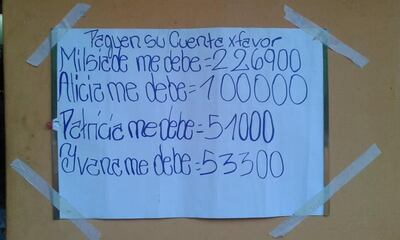 Paguen su Cuenta xfavor
Milsiade me debe=226900
Alicia me debe=100000
Patricia me debe=51000
Yvana me debe=53300